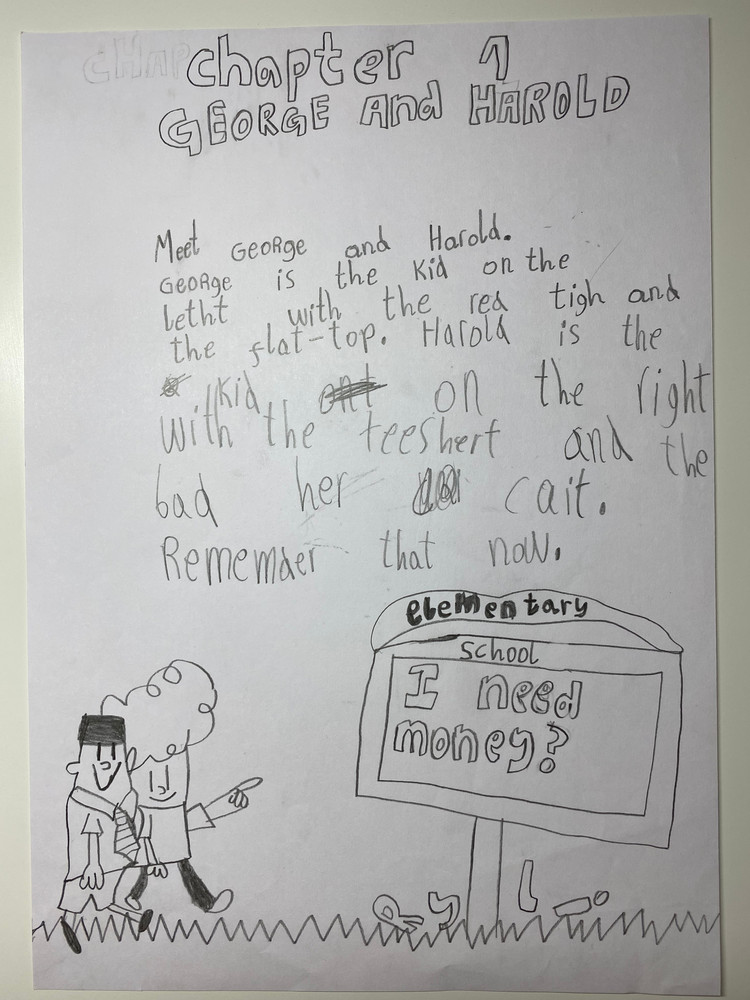 chapter 1
GEORGE And HAROLD
Meet GEORGE and Harold.
GEORGE is the Kid on the
letht with the red tigh and
the flat-top. Harold is the
Kid on the right
with the teeshert and the
bad her cait.
Rememaer that now.
elementary
school
I need
money?